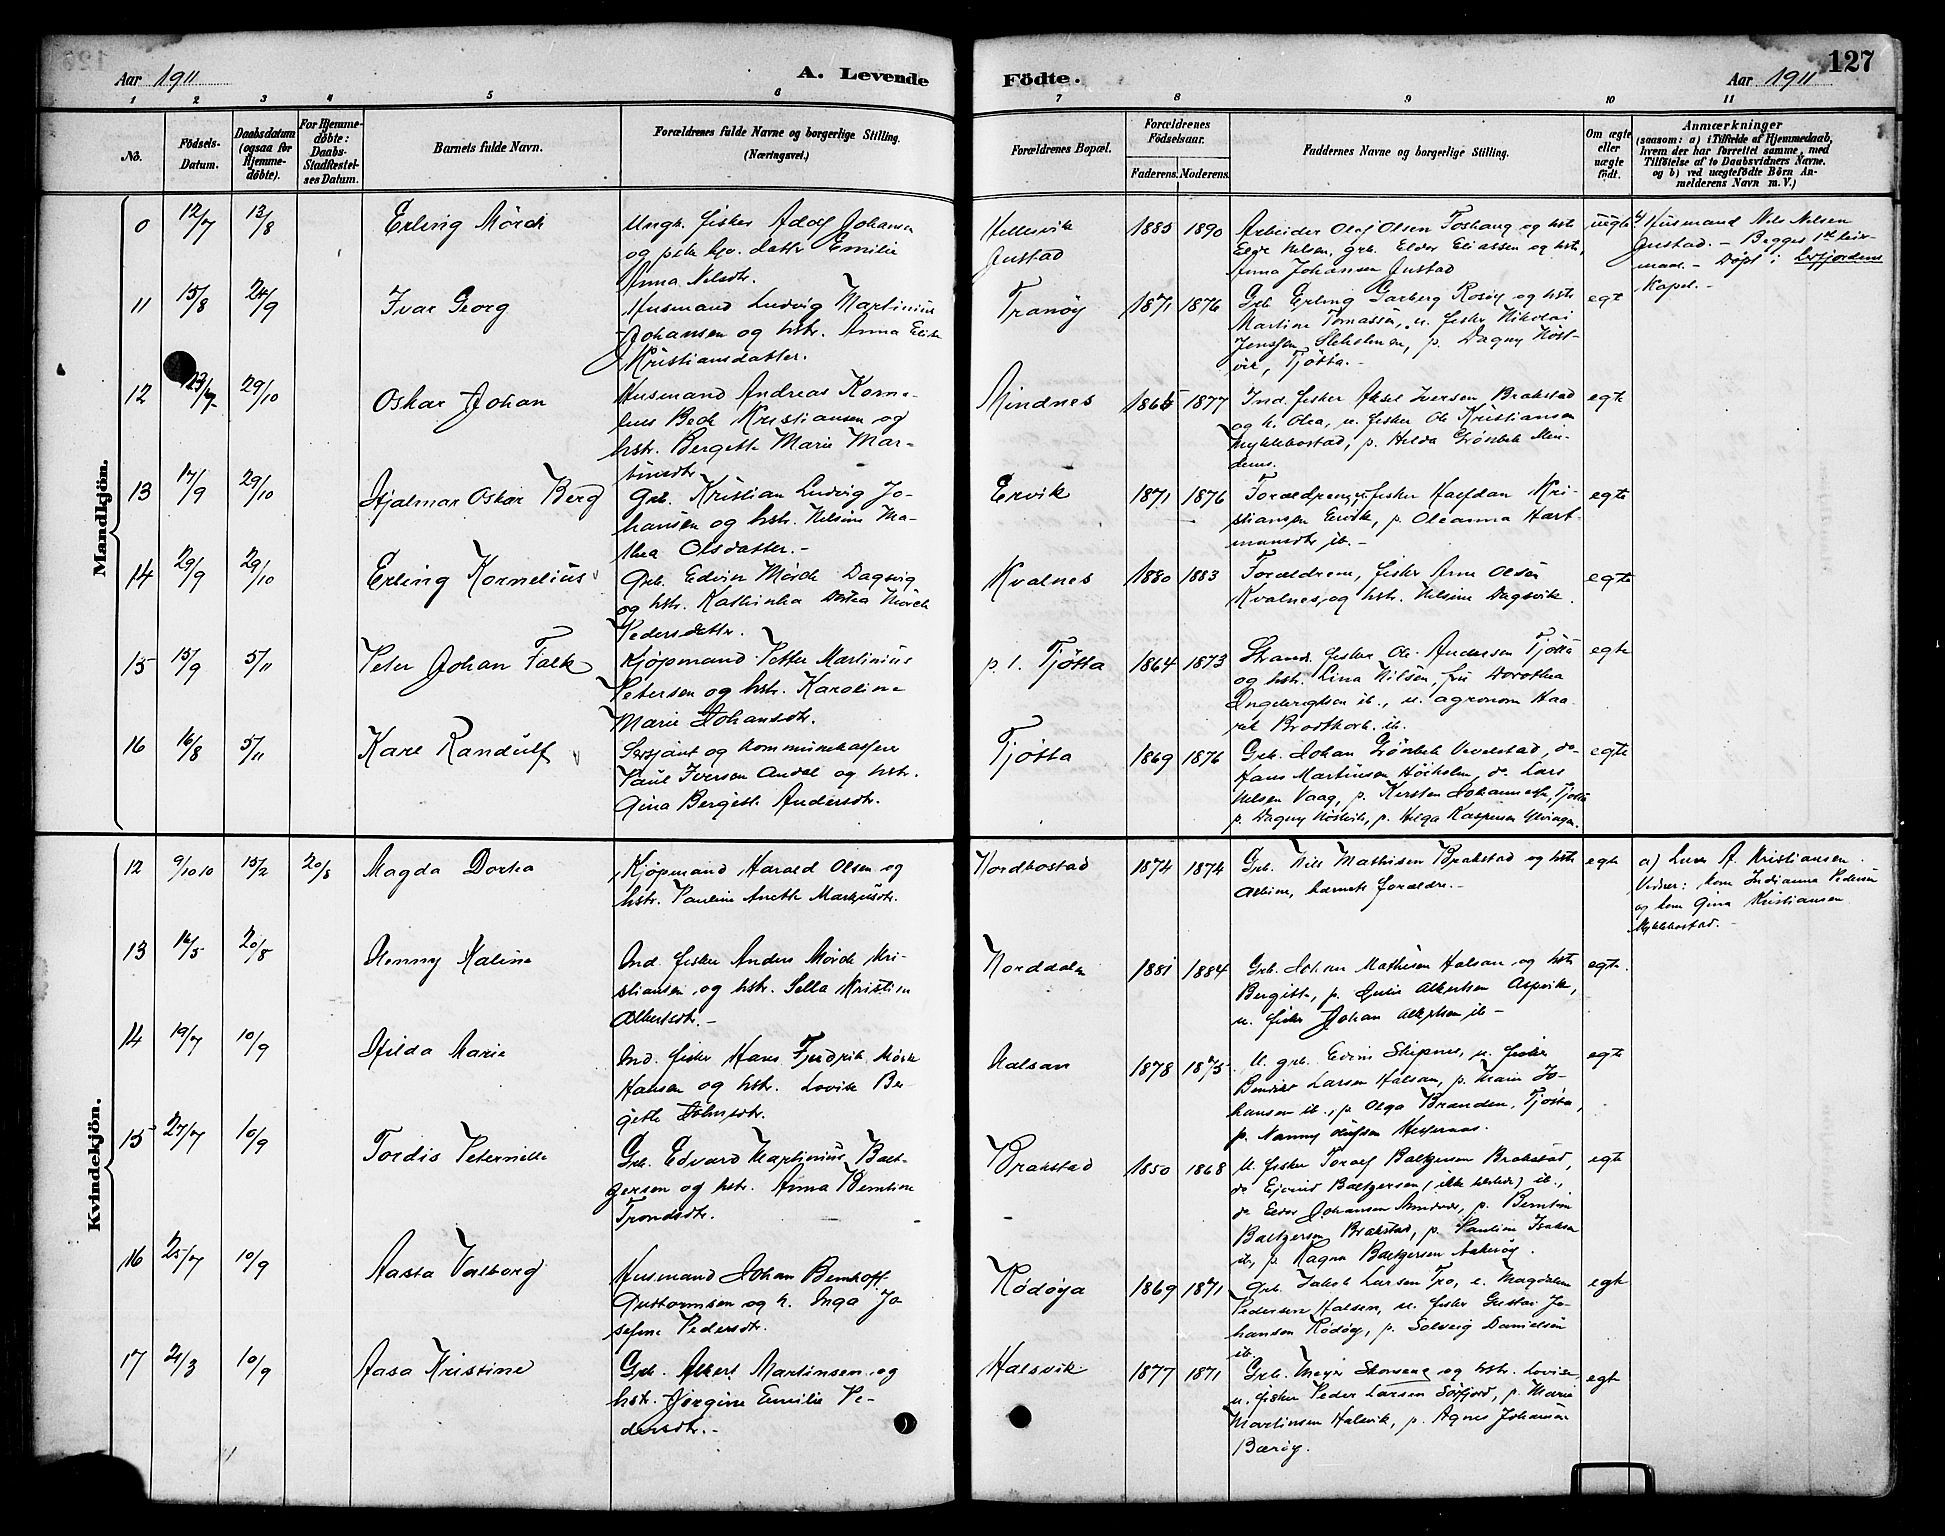 127
Aar 1911
A. Levende
Födte.
Aar 1911
1 2 3 4 5 6 7 8 9 10 11
No.
Födsels-
Datum.
Daabsdatum
(ogsaa for
Hjemme-
döbte).
For Hjemme-
döbte:
Daabs-
Stadfæstel-
ses Datum.
Barnets fulde Navn.
Forældrenes fulde Navne og borgerlige Stilling.
(Næringsvei.)
Forældrenes Bopæl.
Forældrenes
Födselsaar.
Faderens. Moderens.
Faddernes Navne og borgerlige Stilling.
Om ægte
eller
uægte
födt.
Anmærkninger
(saasom: a) i Tilfælde af Hjemmedaab,
hvem der har forrettet samme, med
Tilföielse af to Daabsvidners Navne.
og b) ved uægtefödte Börn An-
melderens Navn m. V.)
Mandkjön.
0 12/7 13/8 Erling Mörch
Ungk. fisker Adolf Johansen
og pike datter Emilie
Anna Nilsdtr.
Hellesvik
Justad
1885 1890
Arbeider Olaf Olsen Foshaug og hst.
Nilsen, grb. Eliassen og hstr.
Anna Johansen Justad
uegte
Husmand Nils Nilsen
Justad. - Begges 1ste leier-
maal. - Döpt i
Kapel. -
11 15/8 24/9 Ivar Georg
Husmand Ludvig Martinius
Johansen og hstr. Anna
Kristiansdatter.
Tranöy
1871 1876
Grb. Erling Garberg Rosöy og hstr.
Martine Tomassen, u. fisker Nikolai
Jenssen, p. Dagny Höst-
vik, Tjötta. -
egte
12 29/10 Oskar Johan
Husmand Andreas Korne-
lius Bech Kristiansen og
hstr. Bergitte Marie Mar-
tinsdtr.
Mindnes
1865 1877
Ind. fisker Aksel Iversen Brakstad
og h. Olea, u. fisker Ole Kristiansen
Myklebostad, p. Hilda Grönbek Min-
denes.
egte
13 17/9 29/10 Hjalmar Oskar Berg
Grb. Kristian Ludvig Jo-
hansen og hstr. Nilsine Ma-
thea Olsdatter. -
Ervik
1871 1876
Forældrene, fisker Halfdan Kri-
stiansen Ervik, p. Oleanna Hart-
mansdtr ib. -
egte
14 29/9 29/10 Erling Kornelius
Grb. Edvin Mörch Dagsvig
og hstr. Kathinka Dortea Mörch
Pedersdattr.
Kvalnes
1880 1883
Forældrene, fisker Arne Olsen
Kvalnes, og hstr. Nilsine Dagsvik.
egte
15 15/9 5/11 Peter Johan Falk
Kjöpmand Petter Martinius
Petersen og hstr. Karoline
Marie Johansdtr.
p.t. Tjötta
1864 1873
Strands. fisker Ole Andersen Tjötta
og hstr. Lina Nilsen, fru Dorothea
Ingebrigtsen ib., u. agronom Haa-
Brodtkorb ib.
egte
16 16/8 5/11 Kare Randulf
Sersjant og kommunekasserer
Paul Iversen Andal og hstr.
Gina Bergitte Andersdtr.
Tjötta
1869 1876
Grb. Johan Grönbek Vevelstad, do
Hans Martinsen Höiholm, do Lars
Nilsen Vaag, p. Kirsten Johannesen, Tjötta
p. Dagny Höstvik, p. Helga Kaspersen
egte
Kvindekjön.
12 9/10 10 15/2 20/8 Magda Dortea
Kjöpmand Harald Olsen og
hstr. Pauline Anette Markusdtr.
Nordbostad
1874 1874
Grb. Nils Mathisen Brakstad og hstr
Albine, barnets forældre. -
egte
a) Lærer A. Kristiansen.
Vidner: kone Indianna Pedersen
og kone Gina Kristiansen
Myklebostad. -
13 16/5 20/8 Henny Kaline
Ind. fisker Anders Mörch Kri-
stiansen og hstr. Sella Kristine
Albertsdtr. -
Norddalen
1881 1884
Grb. Johan Mathisen Halsan og hstr
Bergitte, p. Albertsen Aspvik,
u. fisker Johan Albertsen ib -
egte.
14 19/7 10/9 Hilda Marie
Ind. fisker Hans Fredrik Mörch
Hansen og hstr. Lovise Ber-
gitte Johnsdtr.
Halsan
1878 1875
U. grb. Edvin Skipnes, u. fisker
Larsen Halsan, p. Marie Jo-
hansen ib., p. Olga Branden, Tjötta,
p. Nanny Olufsen
egte
15 27/7 10/9 Tordis Peternille
Grb. Edvard Martinius Balt-
gersen og hstr. Anna Berntine
Trondsdtr.
Brakstad
1850 1868
U. fisker Toralf Baltzersen Brakstad,
do Eivind Baltzersen (ikke tilstede) ib.,
do Johansen, p. Berntine
Baltzersen Brakstad, p. Pauline Isaksen
ib, p. Ragna Baltzersen
egte
16 25/7 10/9 Aasta Valborg
Husmand Johan Bernhoft
Guttormsen og h. Inga Jo-
sefine Pedersdtr.
Rödöya
1869 1871
Grb. Jakob Larsen Tro, e. Magdalena
Pedersen Halsen, u. fisker Gustav Jo-
hansen Rödöy, p. Solveig Danielsen
ib.
egte
17 21/3 10/9 Aasa Kristine
Grb. Albert Martinsen og
hstr. Jörgine Emilie Pe-
dersdtr. -
Halsvik
1877 1871
Grb. Meyer og hstr. Lovise,
u. fisker Peder Larsen Sörfjord, p. Marie
Martinsen Halsvik, p. Agnes Johansen
Bæröy.
egte